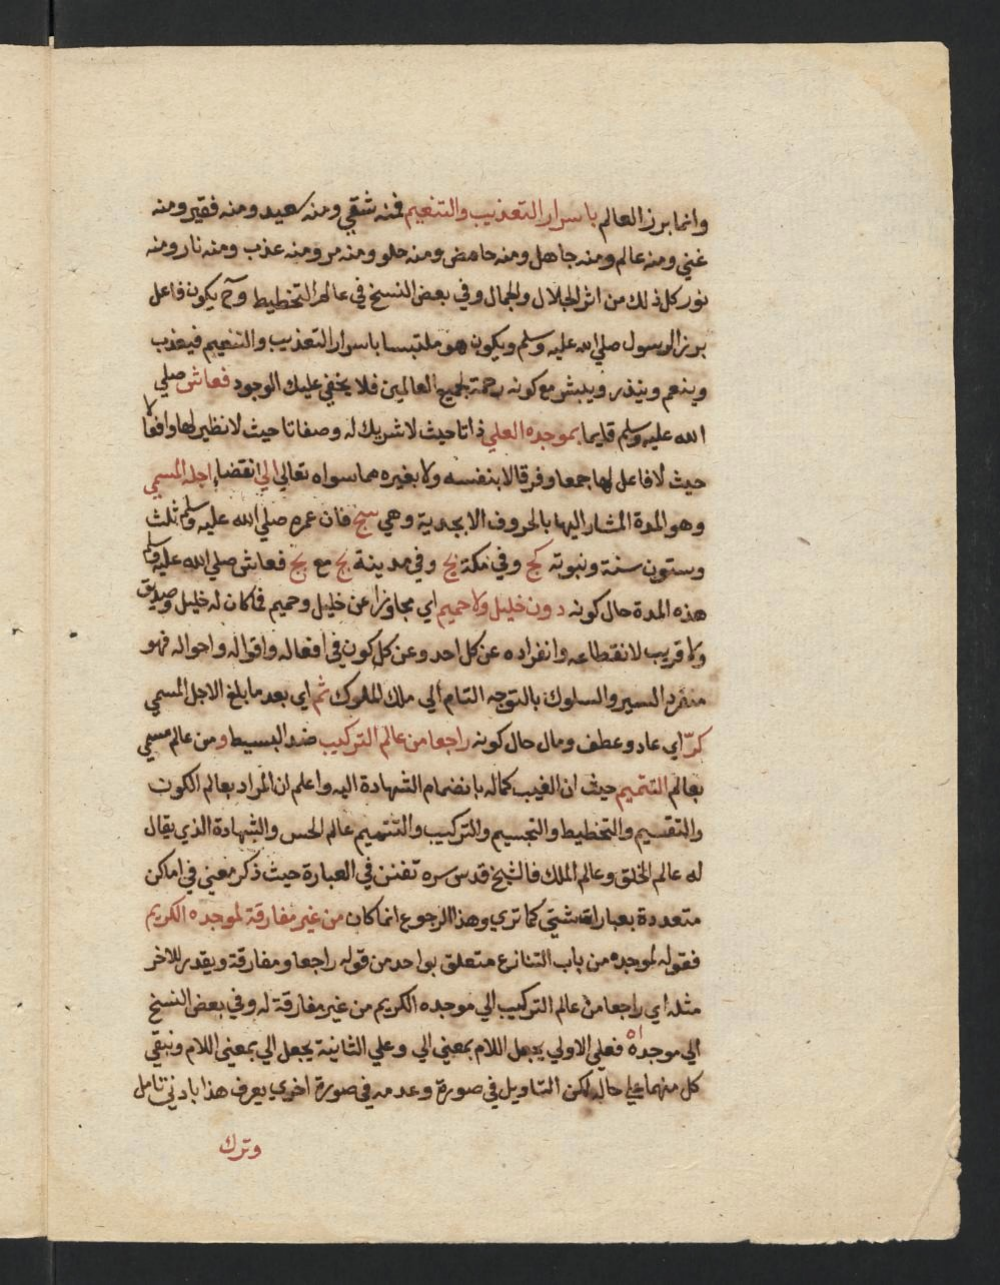 وانما برز العالم باسرار التعذيب والتنعيم فمنه شقي ومنه سعيد ومنه فقير ومنه
غني ومنه عالم ومنه جاهل ومنه حامض ومنه حلو ومنه مر ومنه عذب ومنه نار ومنه
نور كل ذلك من اثر الجلال والجمال وفي بعض النسخ في عالم التخطيط وح يكون فاعل
برز الرسول صلي الله عليه وسلم ويكون هو ملتبسا باسرار التعذيب والتنعيم فيعذب
وينعم وينذر ويبشر مع كونه رحمة لجميع العالمين فلا يخفي عليك الوجود فعاش صلي
الله عليه وسلم قايما بموجده العلي ذاتا حيث لا شريك له وصفاتا حيث لا نظير لها وافعالا
حيث لا فاعل لها جمعا وفرقا لا بنفسه ولا بغيره مما سواه تعالي الي انقضاء اجله المسمي
وهو المدة المشار اليها بالحروف الابجدية وهي سج فان عمره صلي الله عليه وسلم ثلث
وستون سنة ونبوته كج وفي مكة يج وفي مدينة يج مع يج فعاش صلي الله عليه وسلم
هذه المدة حال كونه دون خليل ولا حميم اي مجاوزا عن خليل وحميم فما كان له خليل وصديق
ولا قريب لانقطاعه وانفراده عن كل احد وعن كل كون في افعاله واقواله واحواله فهو
منفرد السير والسلوك بالتوجه التام الي ملك الملوك ثم اي بعد ما بلغ الاجل المسمي
كرّ اي عاد وعطف ومال حال كونه راجعا من عالم التركيب ضد البسيط ومن عالم مسمي
بعالم التتميم حيث ان الغيب كماله بانضمام الشهادة اليه واعلم ان المراد بعالم الكون
والتقسيم والتخطيط والتجسيم والتركيب والتتميم عالم الحس والشهادة الذي يقال
له عالم الخلق وعالم الملك فالشيخ قدس سره تفنن في العبارة حيث ذكر معني في اماكن
متعددة بعبارات شتي كما تري وهذا الرجوع انما كان من غير مفارقة لموجده الكريم
فقوله لموجده من باب التنازع متعلق بواحد من قوله راجعا ومفارقة ويقدر للاخر
مثله اي راجعا من عالم التركيب الي موجده الكريم من غير مفارقة له وفي بعض النسخ
الي موجده اه فعلي الاولي يجعل اللام بمعني الي وعلي الثانية يجعل الي بمعني اللام ونبقي
كل منهما علي حاله لكن التاويل في صورة وعدمه في صورة اخري يعرف هذا بادني تامل
وترك